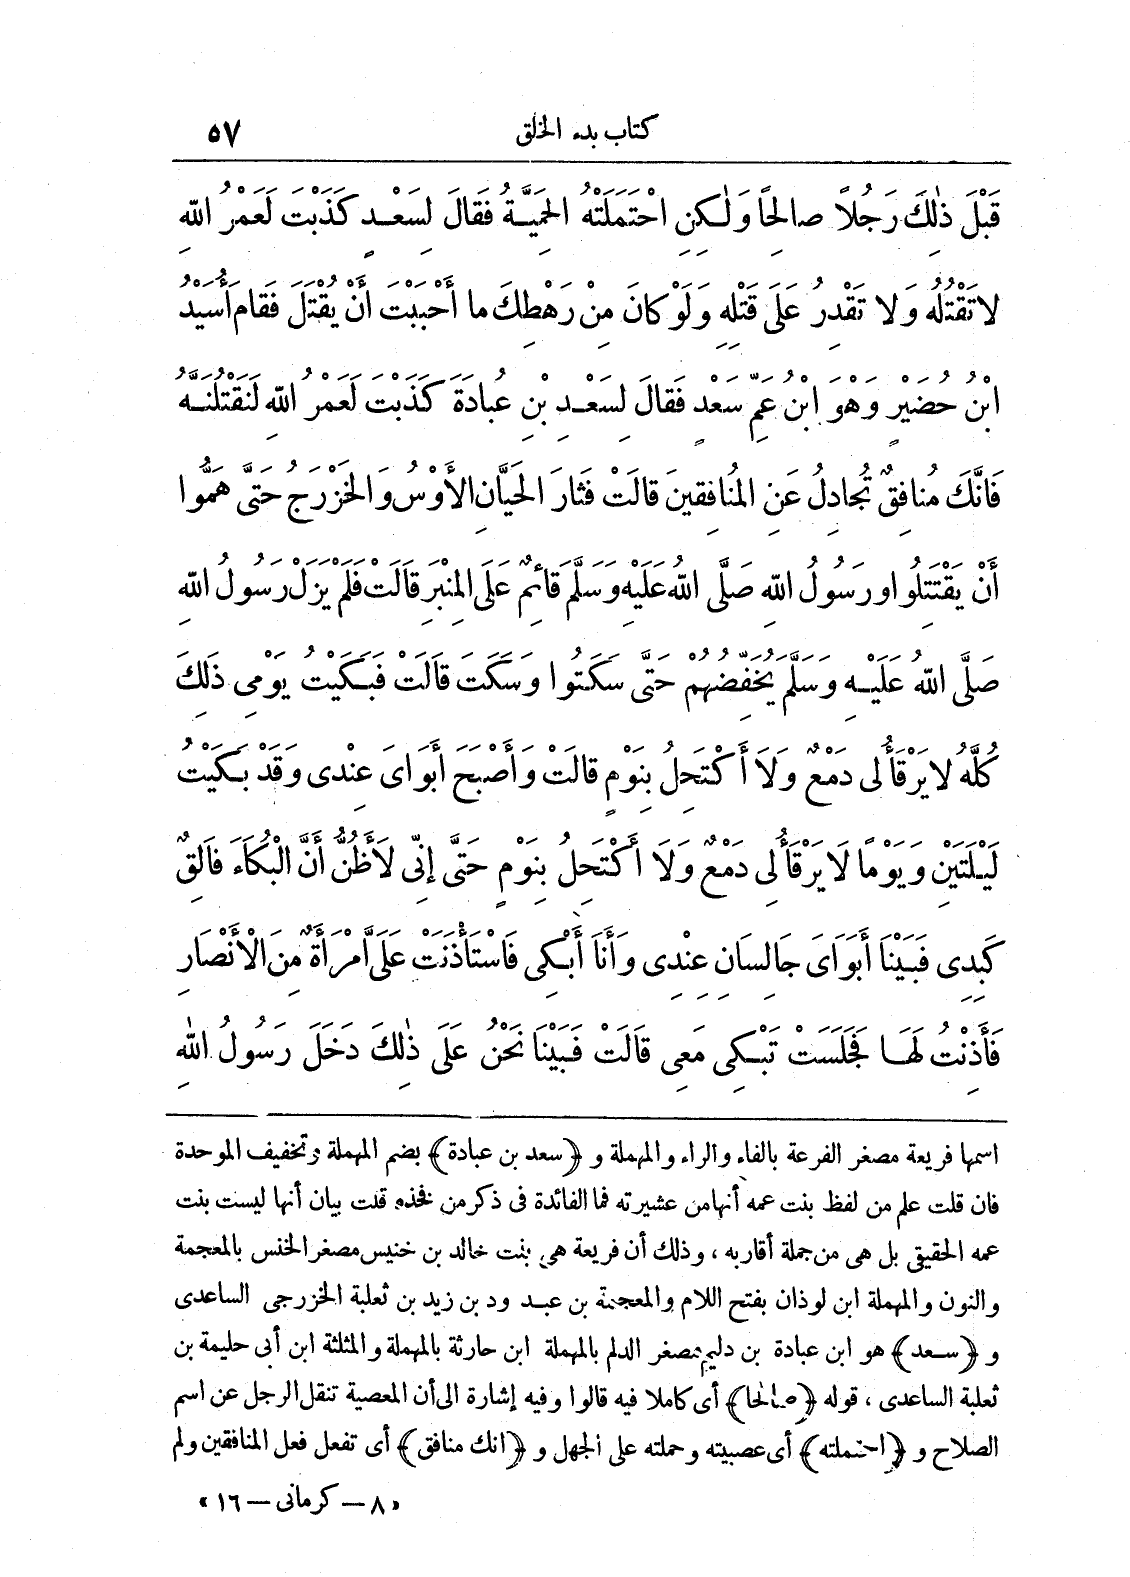 كتاب بدء الخلق ٥٧
قَبْلَ ذٰلِكَ رَجُلاً صالِحاً وَلٰـكِنِ احْتَمَلَتْهُ الحَمِيَّـةُ فَقالَ لِسَعْـدٍ كَذَبْتَ لَعَمْرُ اللهِ
لا تَقْتُلُهُ وَلا تَقْدِرُ عَلَى قَتْلِهِ وَلَوْ كانَ مِنْ رَهْطِكَ ما أَحْبَبْتَ أَنْ يُقْتَلَ فَقامَ أُسَيْدُ
ابْنُ حُضَيْرٍ وَهْوَ ابْنُ عَمِّ سَعْدٍ فَقالَ لِسَعْـدِ بْنِ عُبادَةَ كَذَبْتَ لَعَمْرُ اللهِ لَنَقْتُلَنَّـهُ
فَانَّكَ مُنافِقٌ تُجادِلُ عَنِ المُنافِقِينَ قالَتْ فَثارَ الحَيَّانِ الأَوْسُ وَالخَزْرَجُ حَتَّى هَمُّوا
أَنْ يَقْتَتِلُوا ورَسُولُ اللهِ صَلَّى اللهُ عَلَيْهِ وَسَلَّمَ قَائِمٌ عَلَى المِنْبَرِ قَالَتْ فَلَمْ يَزَلْ رَسُولُ اللهِ
صَلَّى اللهُ عَلَيْـهِ وَسَلَّمَ يُخَفِّضُهُمْ حَتَّى سَكَتُوا وَسَكَتَ قَالَتْ فَبَـكَيْتُ يَوْمِي ذَلِكَ
كُلَّهُ لا يَرْقَأُ لى دَمْعٌ وَلَا أَكْتَحِلُ بِنَوْمٍ قالَتْ وَأَصْبَحَ أَبَواىَ عِنْدِى وَقَدْ بَـكَيْتُ
لَيْـلَتَيْنِ وَيَوْمًا لَا يَرْقَأُ لِى دَمْعٌ وَلَا أَكْتَحِلُ بِنَوْمٍ حَتَّى إِنِّى لَأَظُنُّ أَنَّ الْبُكَاءَ فَالِقٌ
كَبِدِى فَبَيْنَا أَبَوَاىَ جَالِسَانِ عِنْدِى وَأَنَا أَبْكِى فَاسْتَأْذَنَتْ عَلَىَّ امْرَأَةٌ مِنَ الْأَنْصَارِ
فَأَذِنْتُ لَهَـا فَجَلَسَتْ تَبْـكِى مَعِى قَالَتْ فَبَيْنَا نَحْنُ عَلَى ذٰلِكَ دَخَلَ رَسُولُ اللهِ
اسمها فريعة مصغر الفرعة بالفاء والراء والمهملة و ﴿سعد بن عبادة﴾ بضم المهملة وتخفيف الموحدة
فان قلت علم من لفظ بنت عمه أنها من عشيرته فما الفائدة فى ذكر من فخذه قلت بيان أنها ليست بنت
عمه الحقيقى بل هى من جملة أقاربه ، وذلك أن فريعة هى بنت خالد بن خنيس مصغر الخنس بالمعجمة
والنون والمهملة ابن لوذان بفتح اللام والمعجمة بن عبـد ود بن زيد بن ثعلبة الخزرجى الساعدى
و ﴿سـعد﴾ هو ابن عبادة بن دليم مصغر الدلم بالمهملة ابن حارثة بالمهملة والمثلثة ابن أبى حليمة بن
ثعلبة الساعدى ، قوله ﴿صالحا﴾ أى كاملا فيه قالوا وفيه إشارة الى أن المعصية تنقل الرجل عن اسم
الصلاح و ﴿احتملته﴾ أى عصبيته وحملته على الجهل و ﴿انك منافق﴾ أى تفعل فعل المنافقين ولم
«٨ – كرمانى – ١٦»